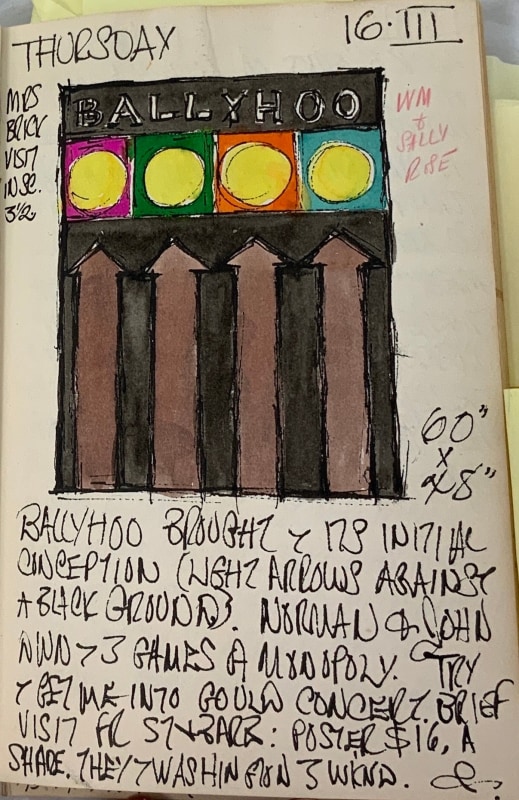 THURSDAY
16·III
MRS
BRICK
VISIT
IN SC.
3½
BALLYHOO
WM
&
SALLY
ROSE
60"
X
48"
BALLYHOO BROUGHT ITS INITIAL
CONCEPTION (LIGHT ARROWS AGAINST
A BLACK GROUND). NORMAN & JOHN
3 GAMES MONOPOLY. TRY
GET ME INTO GOULD CONCERT. BRIEF
VISIT FR STABLE: POSTER $16, A
SHADE. THEY WASHINGTON 3 WKND.